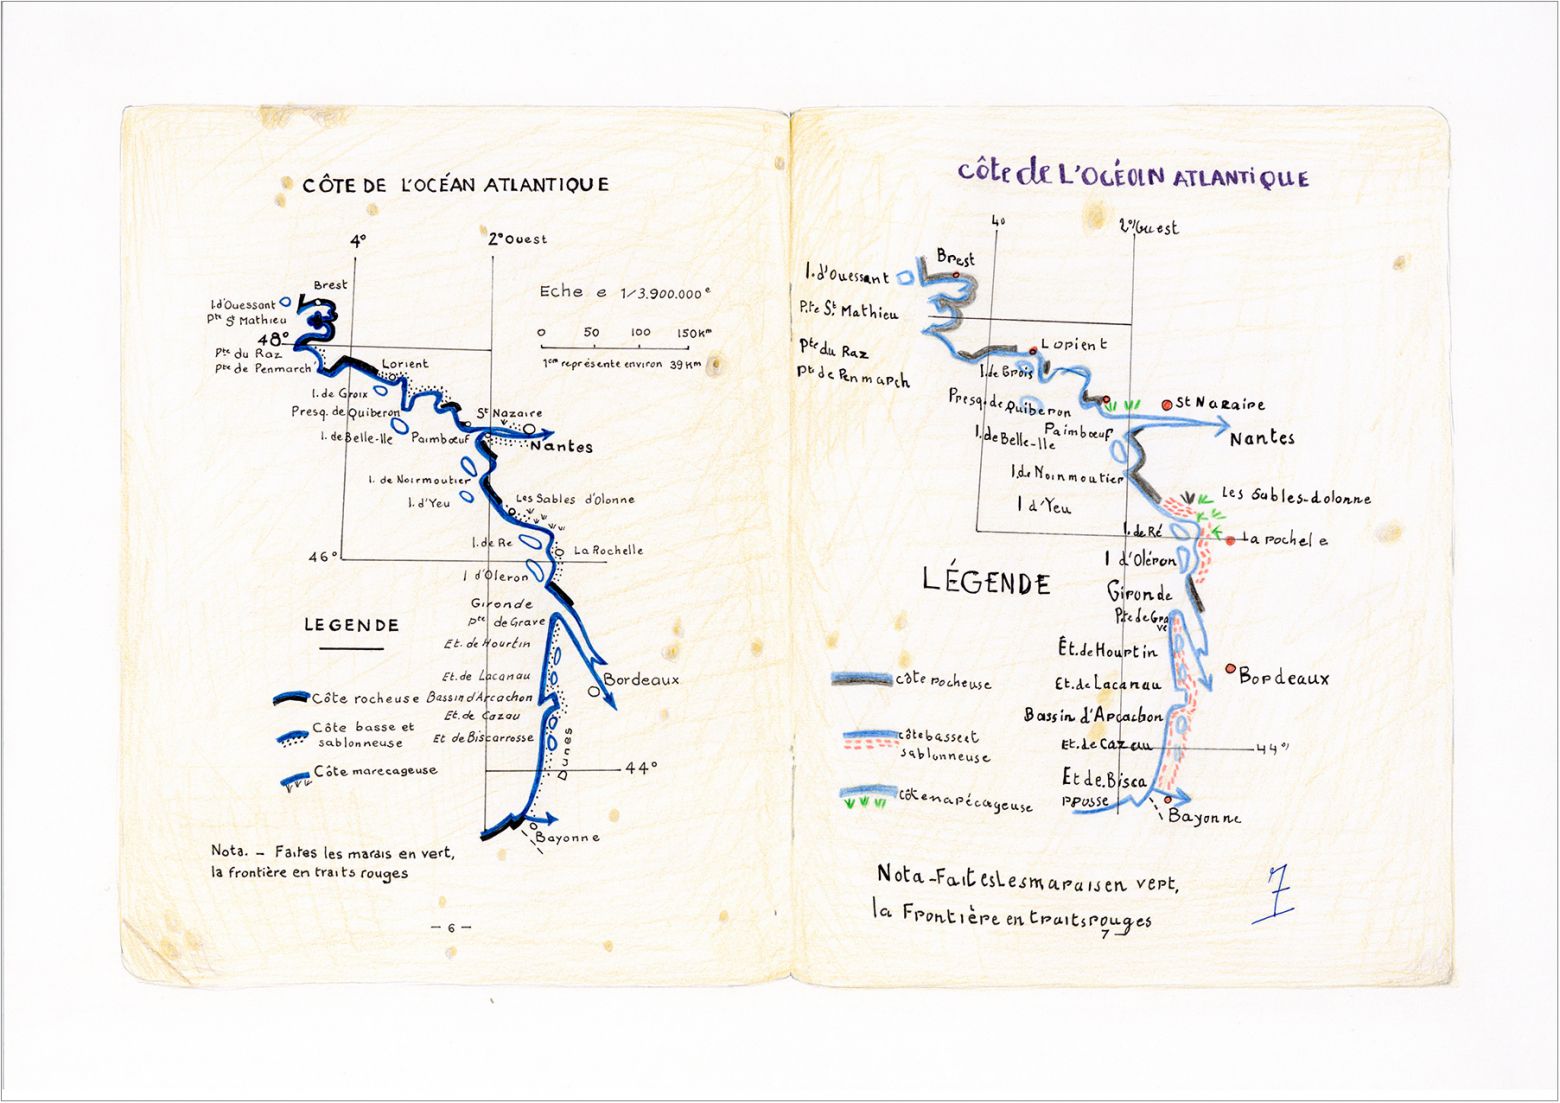 CÔTE DE L'OCÉAN ATLANTIQUE
4°
2° Ouest
Eche e 1/3.900.000e
0 50 100 150Km
1cm représente environ 39 Km
Brest
I.d'Ouessant
Pte St Mathieu
48°
Pte du Raz
Pte de Penmarch
Lorient
I. de Groix
Presq. de Quiberon
St Nazaire
I. de Belle-Ile
Paimbœuf
Nantes
I. de Noirmoutier
I. d'Yeu
Les Sables d'Olonne
I. de Re
La Rochelle
46°
I d'Oleron
Gironde
Pte de Grave
Et. de Hourtin
Et. de Lacanau
Bordeaux
Bassin d'Arcachon
Et. de Cazau
Et de Biscarrosse
Dunes
44°
Bayonne
LEGENDE
Côte rocheuse
Côte basse et
sablonneuse
Côte marecageuse
Nota. – Faites les marais en vert,
la frontière en traits rouges
– 6 –
côte de L'OCÉAN ATLANTIQUE
4°
2° Ouest
Brest
I. d'Ouessant
P.te St. Mathieu
Pte du Raz
Pt de Penmarch
Lorient
I. de Grois
Presq. de Quiberon
St Nazaire
Paimbœuf
Nantes
I. de Belle-Ile
I. de Noirmoutier
I d'Yeu
Les Sables-dolonne
I. de Ré
La rochel e
I d'Oléron
Gironde
Pte de Gra
ve
Êt. de Hourtin
Et. de Lacanau
Bordeaux
Bassin d'Arcachon
Et. de Cazau
44°
Et de. Bisca
rrosse
Bayonne
LÉGENDE
côte rocheuse
côte basse et
sablonneuse
côte marécageuse
Nota-Faites Les marais en vert,
la Frontière en traits rouges
7–
7